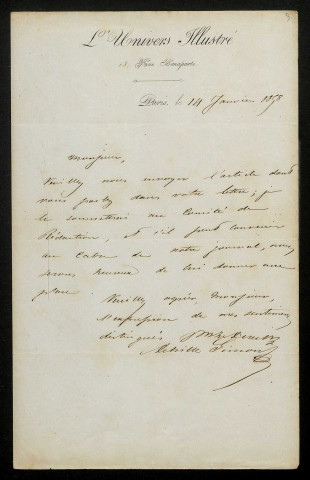 L'Univers Illustré
13, Place Bonaparte
Paris, le 14 Janvier 1858
Monsieur,
Veuillez nous envoyer l'article dont
vous parlez dans votre lettre; je
le soumettrai au Comité de
Rédaction, et s'il peut convenir
au Cadre de notre journal, nous
serons heureux de lui donner une
place
Veuillez agréer, Monsieur,
l'expression de mes sentiments
distingués